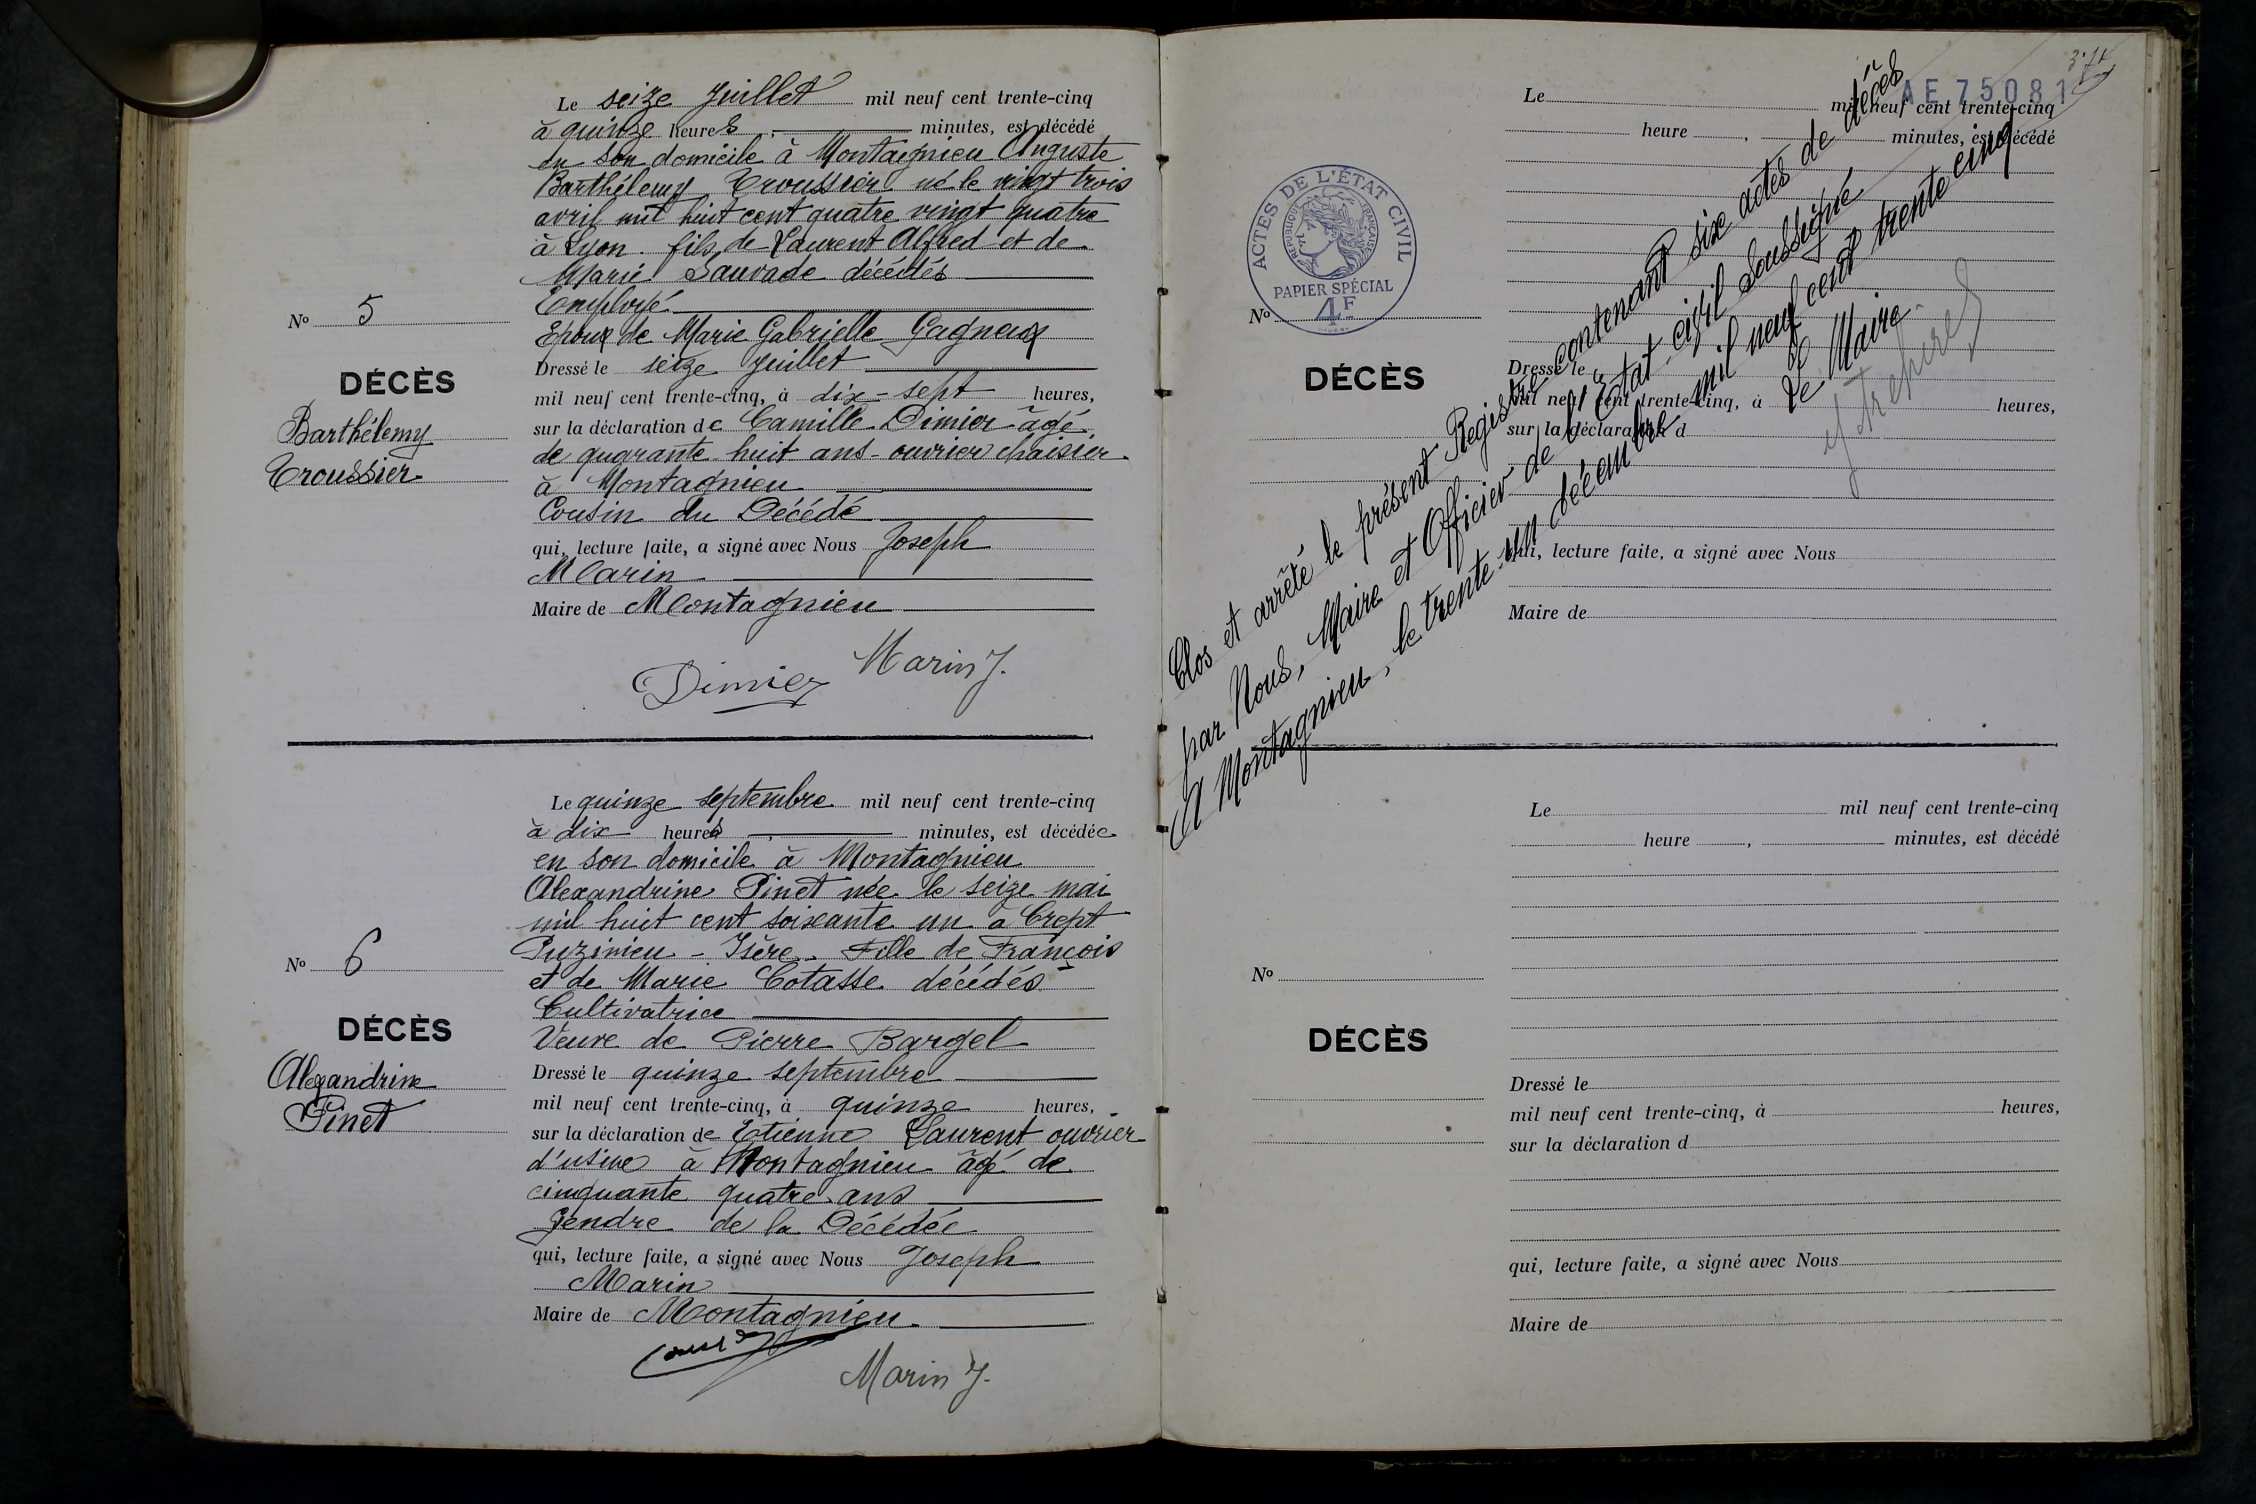 Le seize Juillet mil neuf cent trente-cinq
à quinze heures, minutes, est décédé
en son domicile à Montagnieu Auguste
Barthélemy Troussier né le vingt trois
avril mil huit cent quatre vingt quatre
à Lyon. fils de Laurent Alfred et de
Marie Sauvade décédés
Employé
Epoux de Marie Gabrielle Gagneux
Dressé le seize Juillet
mil neuf cent trente-cinq, à dix-sept heures,
sur la déclaration de Camille Dimier âgé
de quarante huit ans - ouvrier chaisier
à Montagnieu
Cousin du Décédé
qui, lecture faite, a signé avec Nous Joseph
Marin
Maire de Montagnieu
Dimier Marin J.
No 5
DÉCÈS
Barthélemy
Troussier
Le quinze septembre mil neuf cent trente-cinq
à dix heures, minutes, est décédée
en son domicile à Montagnieu
Alexandrine Pinet née le seize mai
mil huit cent soixante un à Crept
Puzinieu - Isère. Fille de François
et de Marie Cotasse décédés
Cultivatrice
Veuve de Pierre Bargel
Dressé le quinze septembre
mil neuf cent trente-cinq, à quinze heures,
sur la déclaration de Etienne Laurent ouvrier
d'usine à Montagnieu âgé de
cinquante quatre ans
Gendre de la Décédée
qui, lecture faite, a signé avec Nous Joseph
Marin
Maire de Montagnieu
Marin J.
No 6
DÉCÈS
Alexandrine
Pinet
AE 75081
Le mil neuf cent trente-cinq
heure, minutes, est décédé
ACTES DE L'ÉTAT CIVIL
RÉPUBLIQUE FRANÇAISE
PAPIER SPÉCIAL
4F
No
DÉCÈS
Dressé le
mil neuf cent trente-cinq, à heures,
sur la déclaration d
qui, lecture faite, a signé avec Nous
Maire de
Clos et arrêté le présent Registre contenant six actes de décès
par Nous, Maire et Officier de l'Etat-civil soussigné
A Montagnieu, le trente-un décembre mil neuf cent trente cinq
Le Maire
Le mil neuf cent trente-cinq
heure, minutes, est décédé
No
DÉCÈS
Dressé le
mil neuf cent trente-cinq, à heures,
sur la déclaration d
qui, lecture faite, a signé avec Nous
Maire de